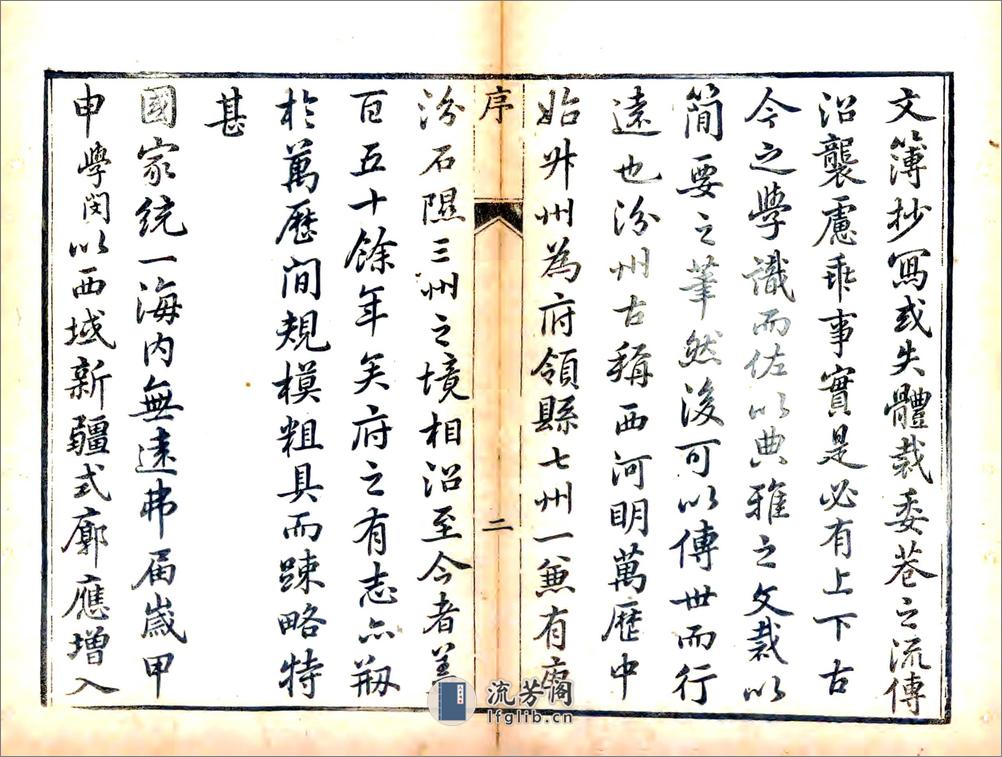 文簿抄寫或失體裁委巷之流傳
沿襲慮乖事實是必有上下古
今之學識而佐以典雅之文裁以
簡要之筆然後可以傳世而行
遠也汾州古稱西河明萬歷中
始升州為府領縣七州一兼有
序
二
汾石隰三州之境相沿至今者蓋
百五十餘年矣府之有志亦刱
於萬歷間規模粗具而踈略特
甚
國家統一海內無遠弗屆歲甲
申學閔以西域新疆式廓應增入
流芳阁
lfglib.cn